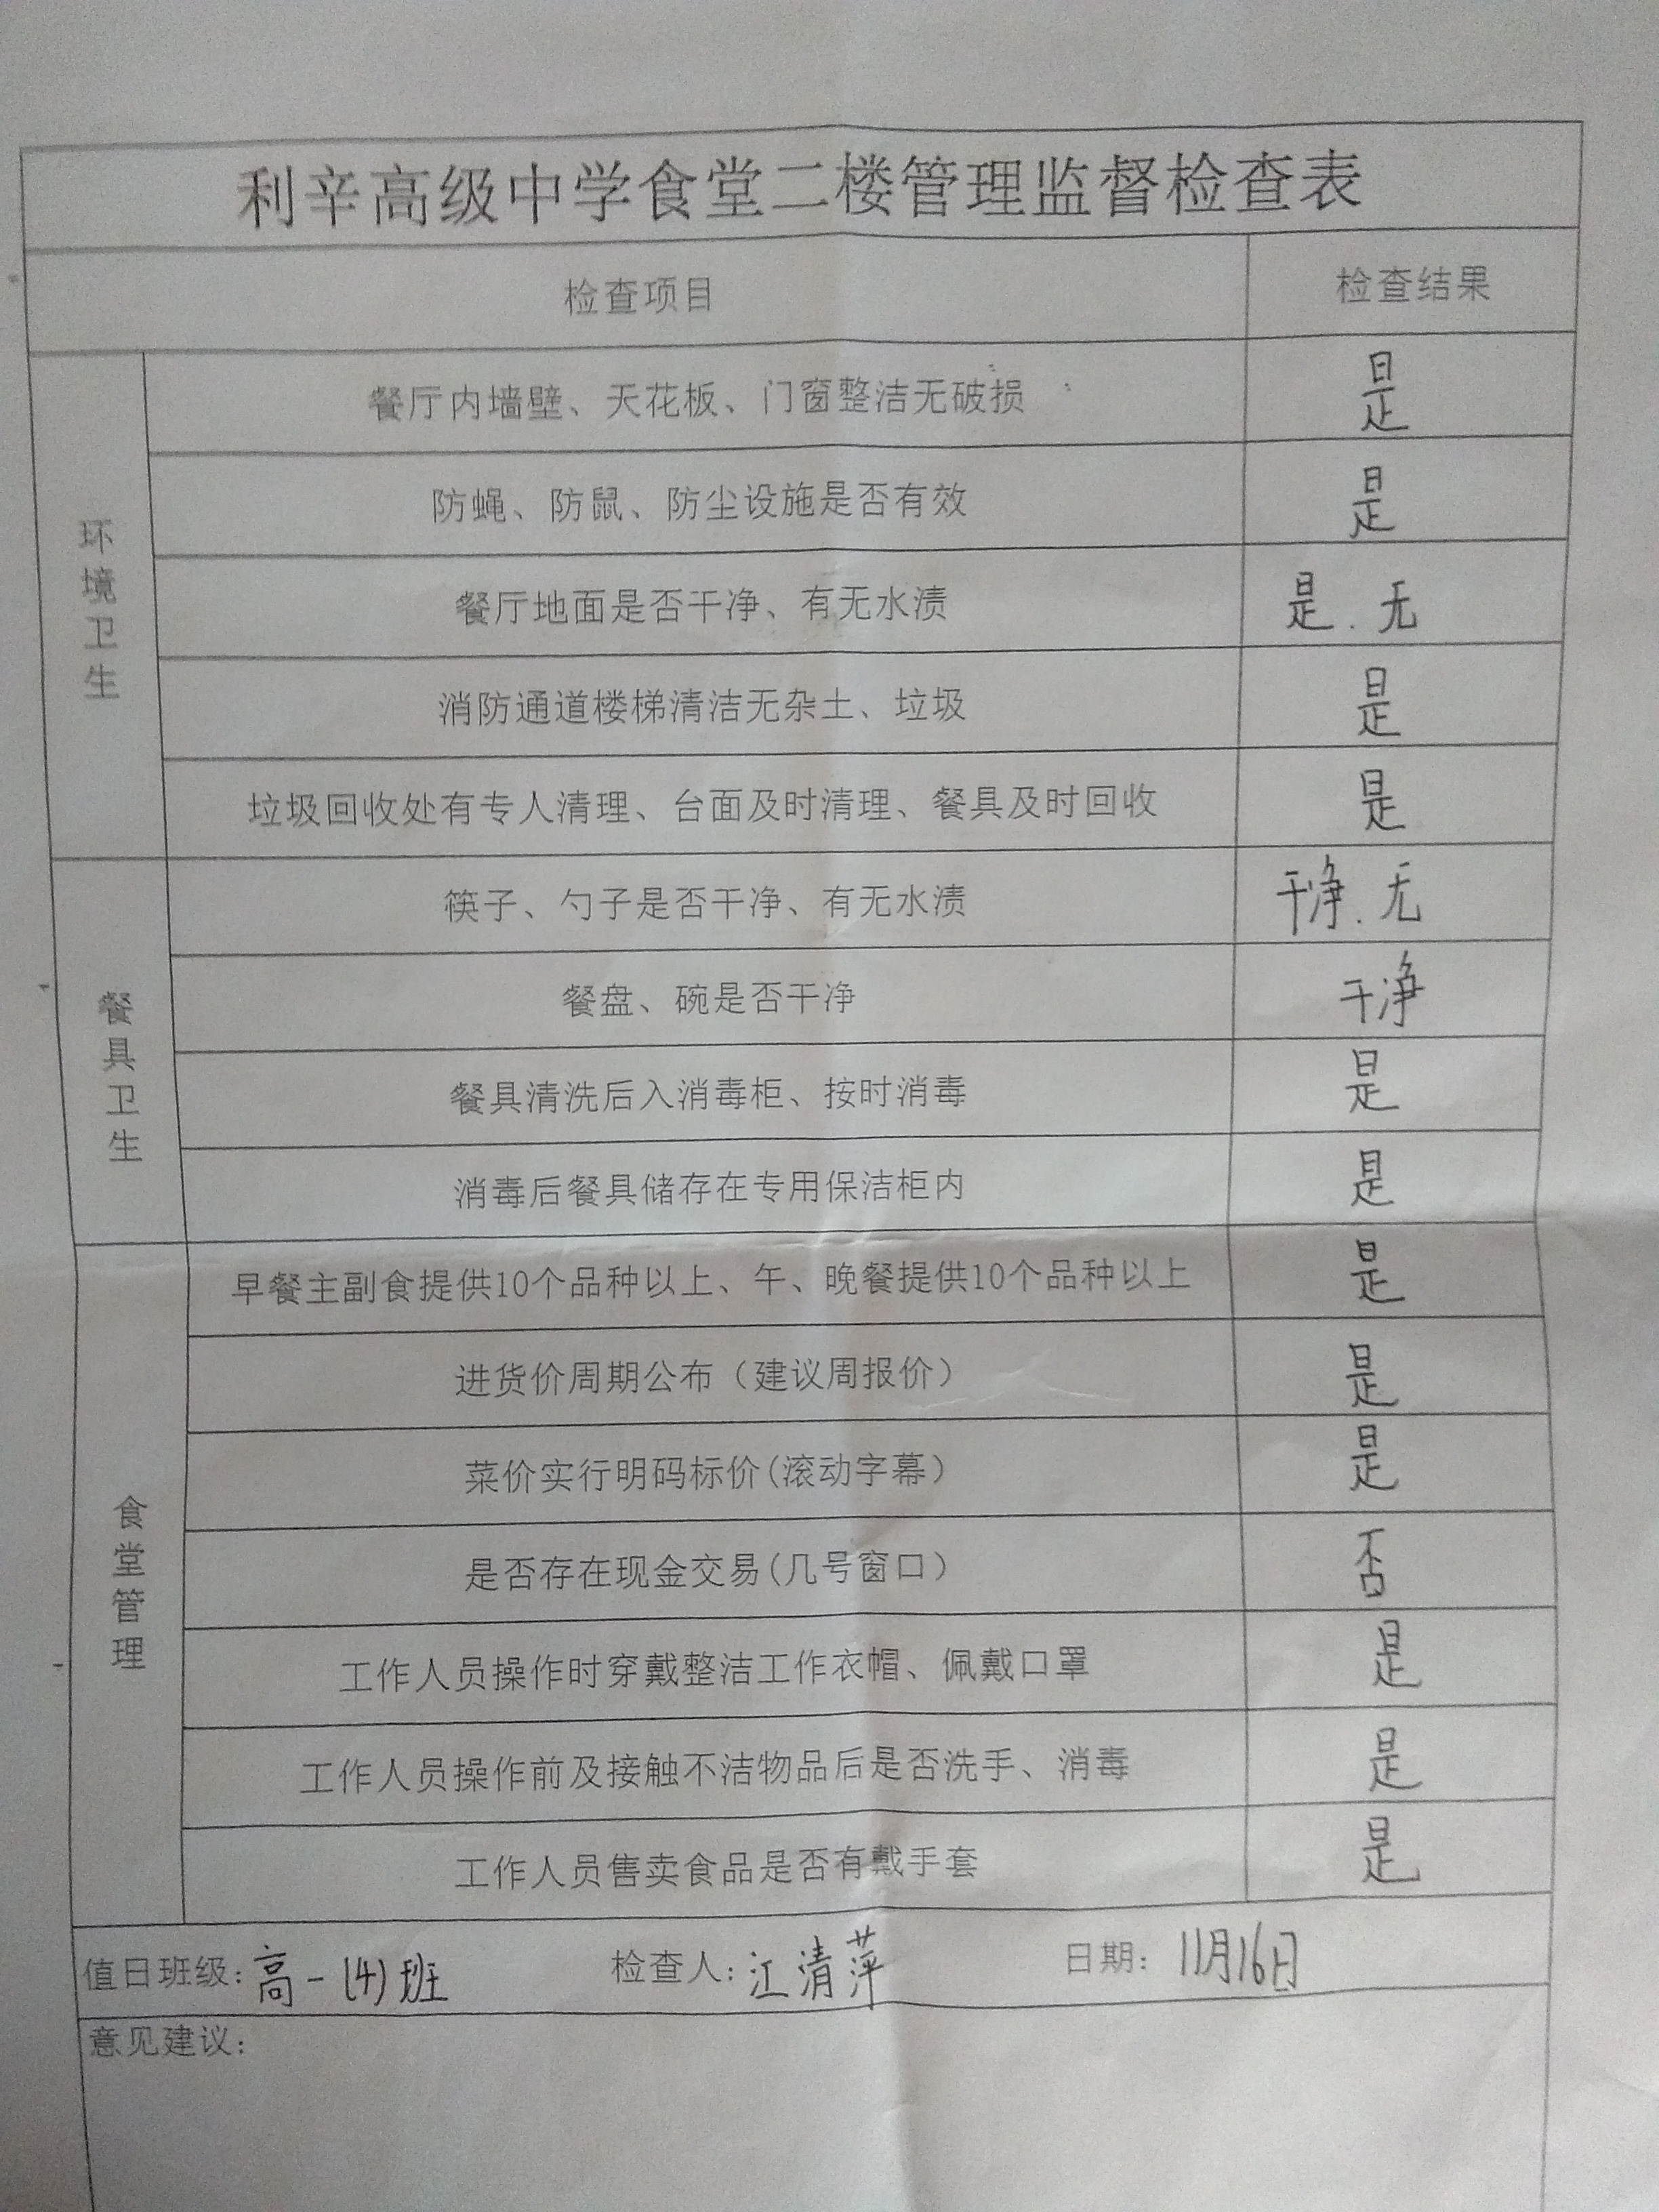 利辛高级中学食堂二楼管理监督检查表
检查项目 检查结果
环境卫生
餐厅内墙壁、天花板、门窗整洁无破损 是
防蝇、防鼠、防尘设施是否有效 是
餐厅地面是否干净、有无水渍 是.无
消防通道楼梯清洁无杂土、垃圾 是
垃圾回收处有专人清理、台面及时清理、餐具及时回收 是
餐具卫生
筷子、勺子是否干净、有无水渍 干净.无
餐盘、碗是否干净 干净
餐具清洗后入消毒柜、按时消毒 是
消毒后餐具储存在专用保洁柜内 是
食堂管理
早餐主副食提供10个品种以上、午、晚餐提供10个品种以上 是
进货价周期公布（建议周报价） 是
菜价实行明码标价(滚动字幕） 是
是否存在现金交易(几号窗口） 否
工作人员操作时穿戴整洁工作衣帽、佩戴口罩 是
工作人员操作前及接触不洁物品后是否洗手、消毒 是
工作人员售卖食品是否有戴手套 是
值日班级：高一(4)班 检查人：江清萍 日期：11月16日
意见建议：